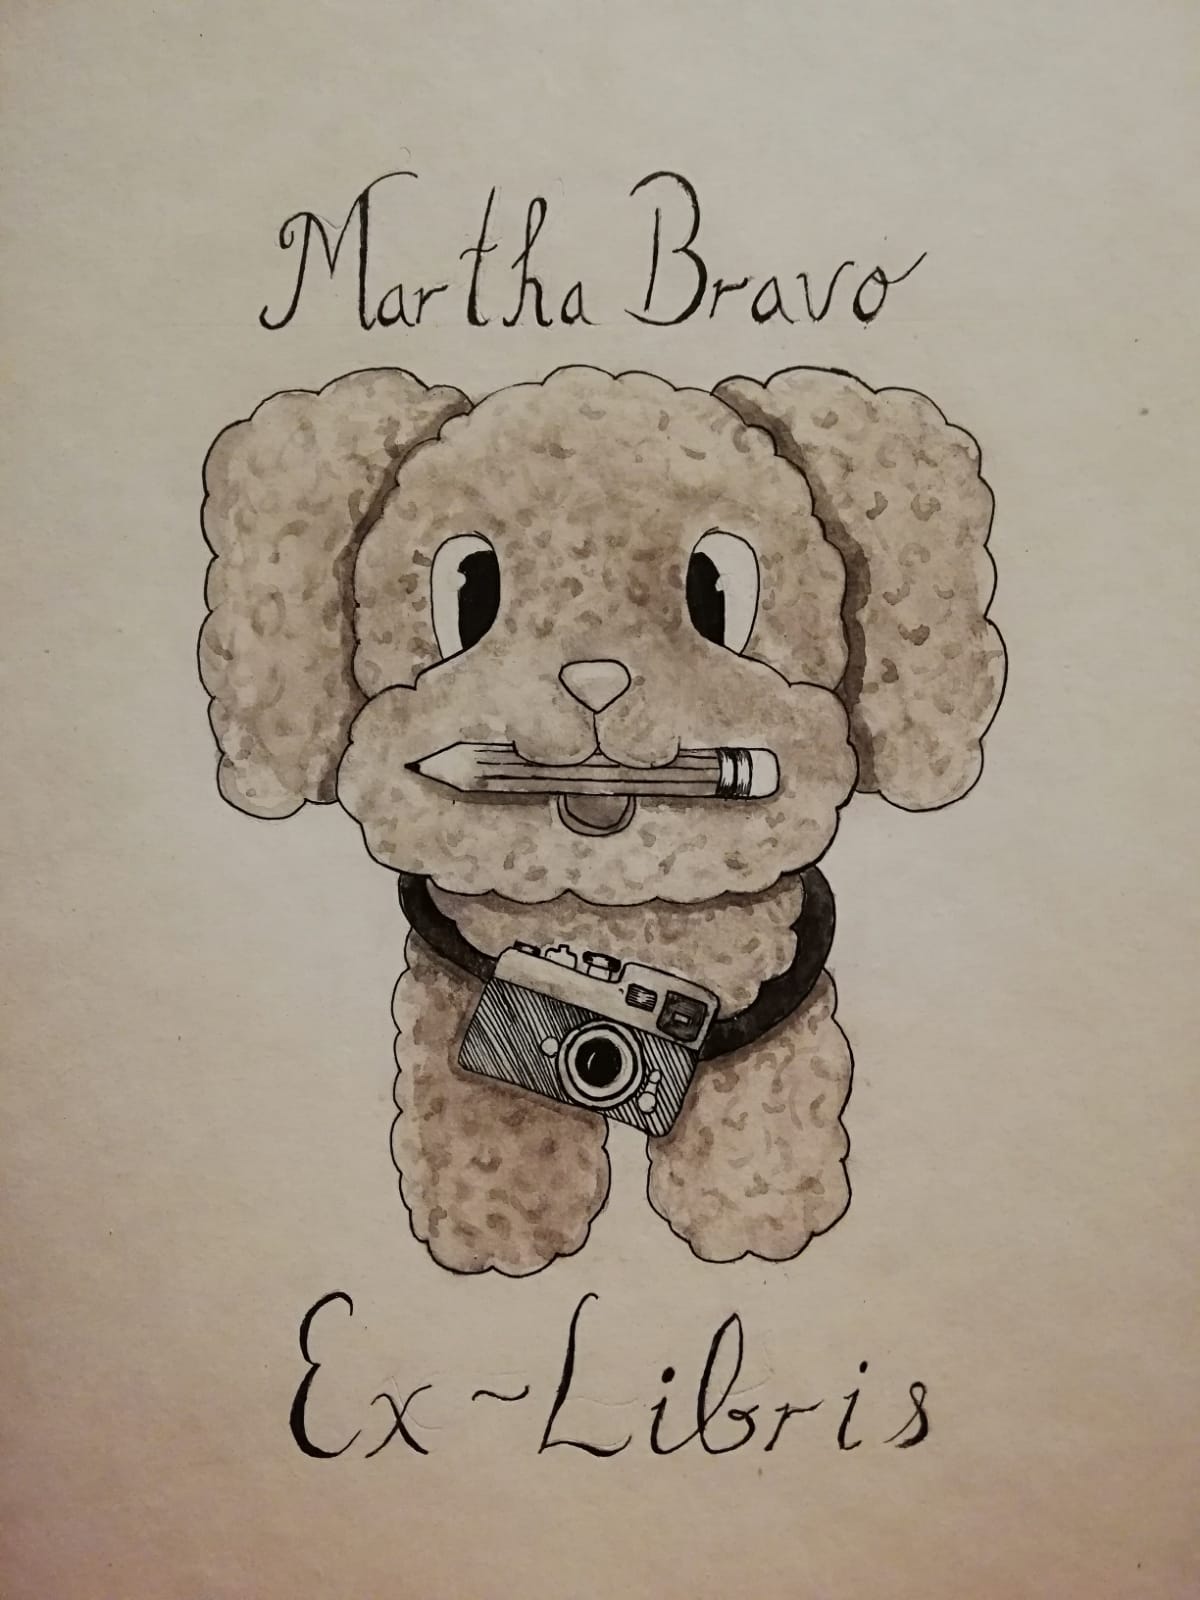 Martha Bravo
Ex~Libris